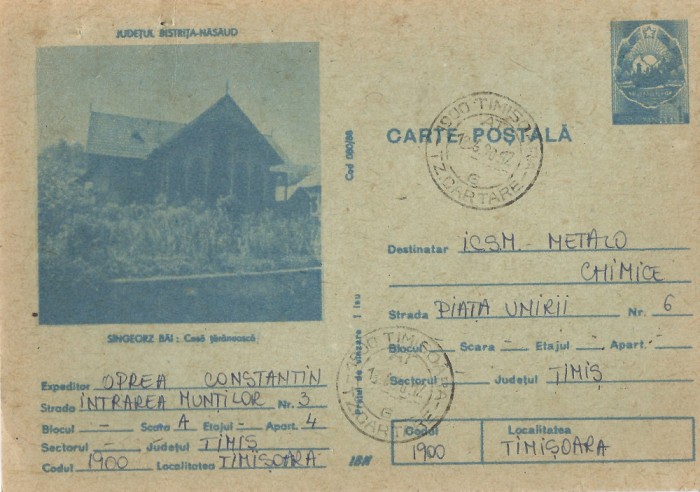 JUDEȚUL BISTRIȚA-NĂSĂUD
SÎNGEORZ BĂI : Casă țărănească
Expeditor OPREA CONSTANTIN
Strada INTRAREA MUNȚILOR Nr. 3
Blocul - Scara A Etajul - Apart. 4
Sectorul - Județul TIMIȘ
Codul 1900 Localitatea TIMIȘOARA
Cod 080/88
Prețul de vînzare 1 leu
CARTE POȘTALĂ
1900 TIMIȘOARA
TZ. CARTARE
Destinatar ICSM - METALO
CHIMICE
Strada PIAȚA UNIRII Nr. 6
Blocul - Scara - Etajul - Apart. -
Sectorul - Județul TIMIȘ
1900 TIMIȘOARA
TZ. CARTARE
Codul Localitatea
1900 TIMIȘOARA